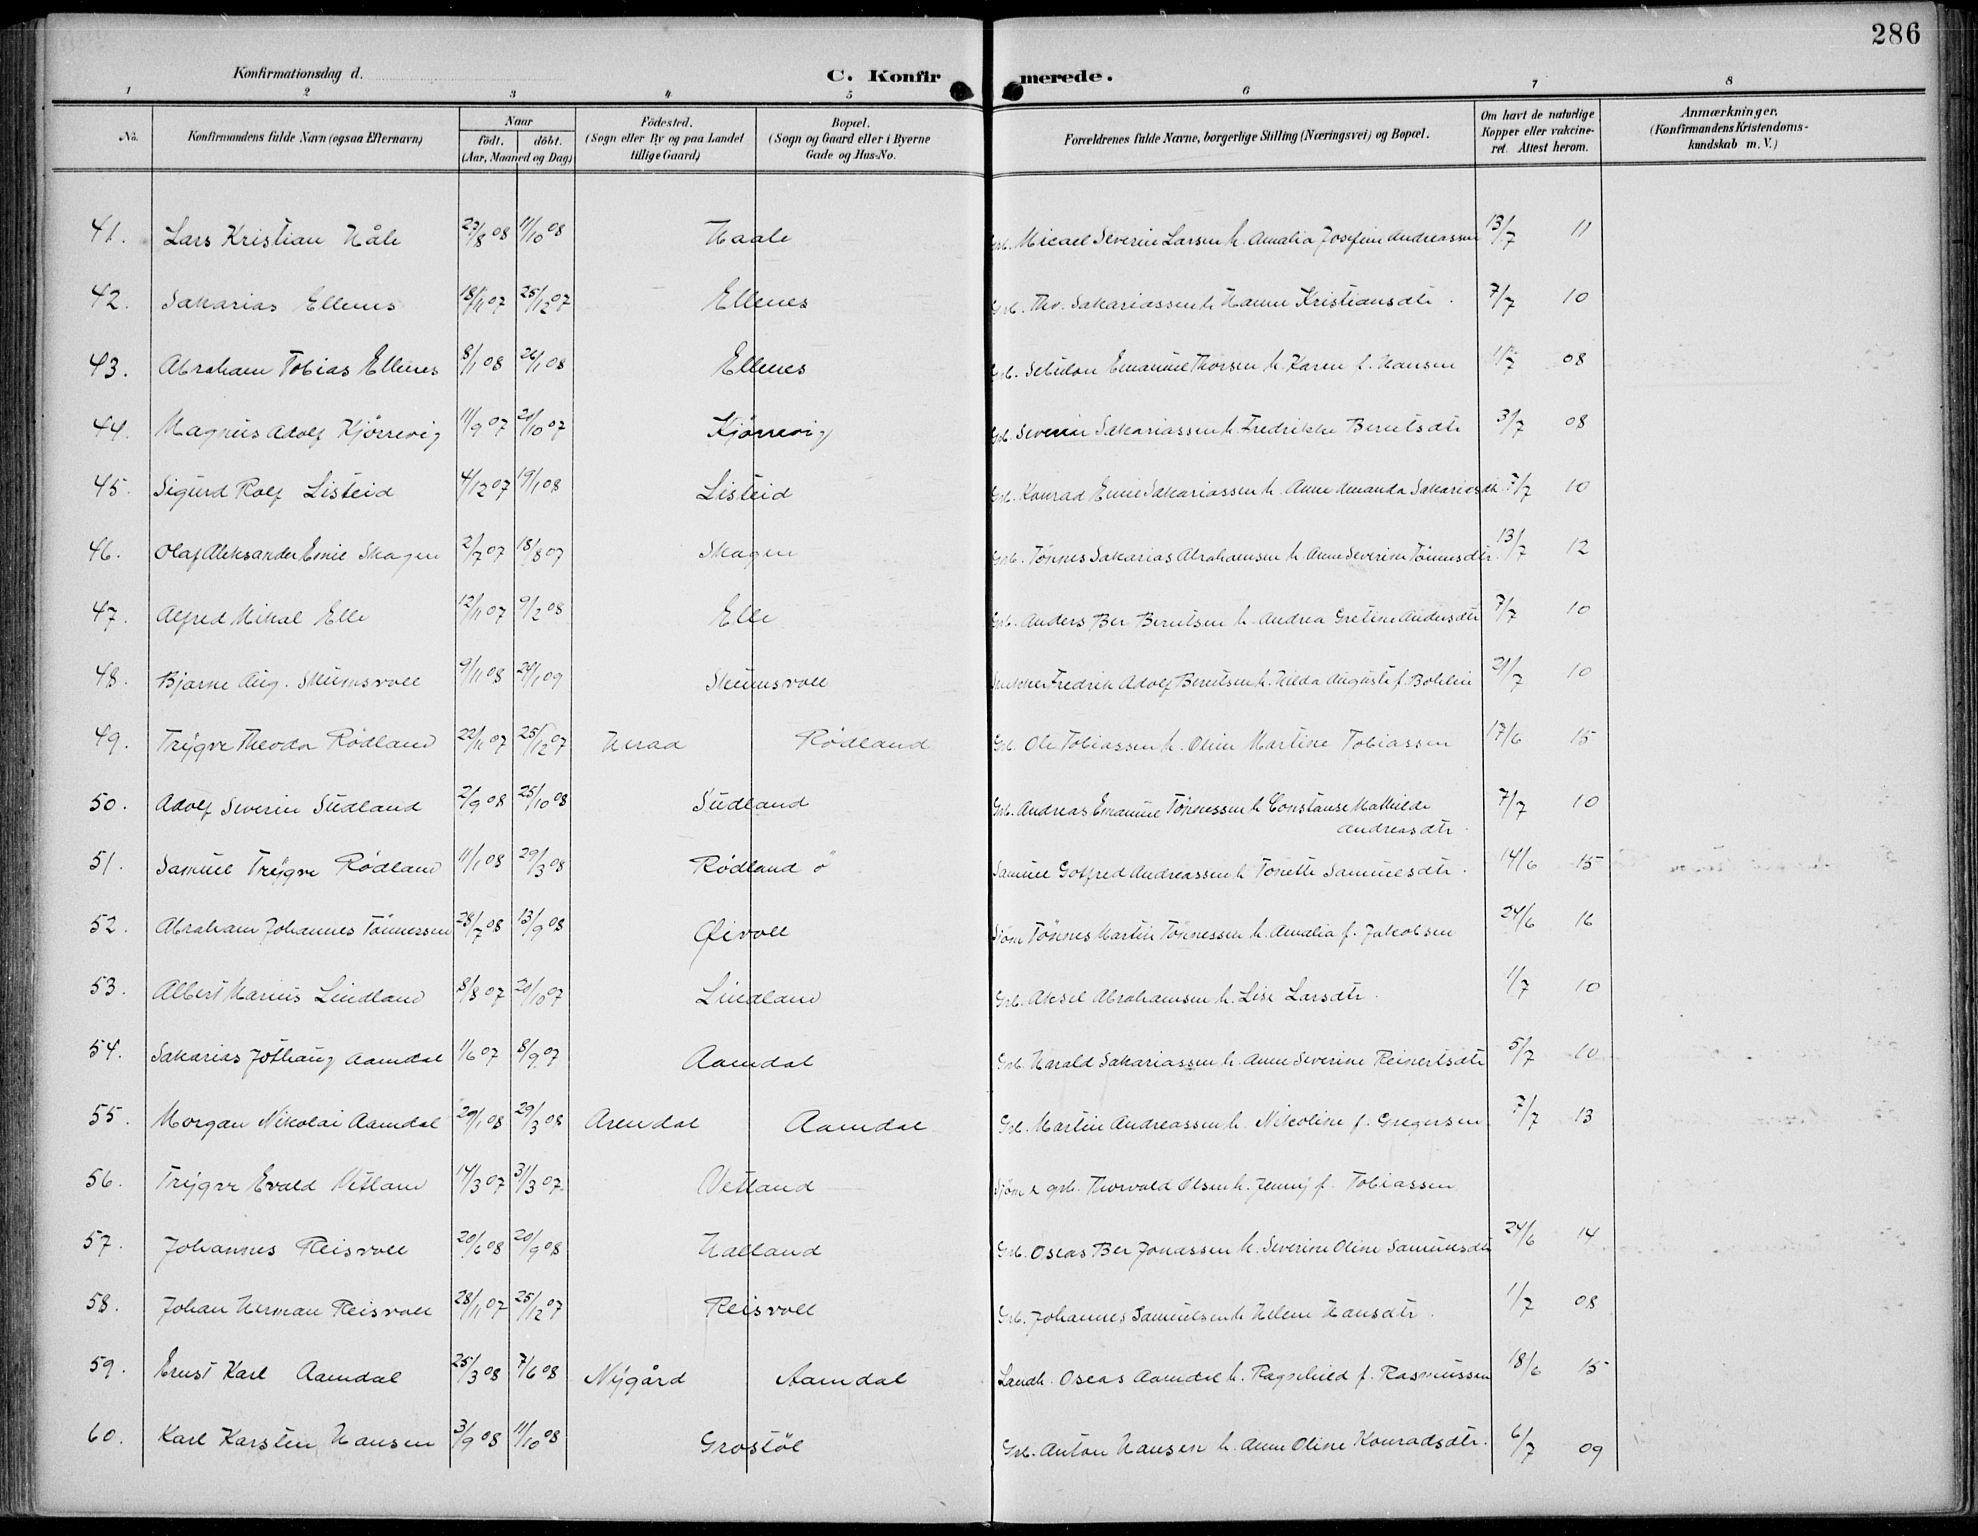 286
Konfirmationsdag d. C. Konfirmerede.
1 2 3 4 5 6 7 8
No. Konfirmandens fulde Navn (ogsaa Efternavn) Naar født. døbt. (Aar, Maaned og Dag) Fødested. (Sogn eller By og paa Landet tillige Gaard) Bopæl. (Sogn og Gaard eller i Byerne Gade og Hus-No. Forældrenes fulde Navne, borgerlige Stilling (Næringsvei) og Bopæl. Om havt de naturlige Kopper eller vakcineret. Attest herom. Anmærkninger. (Konfirmandens Kristendomskundskab m. V.)
41. Lars Kristian Håle 23/8 08 11/10 08 Haale Grb. Micael Severin Larsen h. Amalia Josefine Andreassen 13/7 11
42. Sakarias Ellenes 18/11 07 25/12 07 Ellenes Grb. Thv. Sakariassen h. Hanne Kristiansdtr. 7/7 10
43. Abraham Tobias Ellenes 8/1 08 26/1 08 Ellenes Grb. Sebulon Emanuel Thorsen h. Karen f. Hansen 1/7 08
44. Magnus Adolf Kjørrevig 11/9 07 20/10 07 Kjørrevig Grb. Severin Sakariassen h. Fredrikke Berntsdtr 3/7 08
45. Sigurd Rolf Listeid 4/12 07 19/1 08 Listeid Grb. Konrad Emil Sakariassen h. Anne Amanda Sakariasdtr 7/7 10
46. Olaf Aleksander Emil Skagen 2/7 07 18/8 07 Skagen Grb. Tønnes Sakarias Abrahamsen h. Anne Severine Tønnesdtr. 13/7 12
47. Alfred Mikal Elle 12/11 07 9/2 08 Elle Grb. Anders Ber Berntsen h. Andrea Gretine Andersdtr 7/7 10
48. Bjarne Aug. Skumsvoll 9/11 08 24/1 09 Skumsvoll Snekker Fredrik Adolf Berntsen h. Hilda Augusta f. Bohlin 21/7 10
49. Trygve Theodor Rødland 22/11 07 25/12 07 Herad Rødland Grb. Ole Tobiassen h. Oline Martine Tobiassen 17/6 15
50. Adolf Severin Sudland 2/9 08 25/10 08 Sudland Grb. Andreas Emanuel Tønnessen h. Constanse Mathilde Andreasdtr. 7/7 10
51. Samuel Trygve Rødland 11/1 08 29/3 08 Rødland ø Samuel Gotfred Andreassen h Tonette Samuelsdtr. 14/6 15
52. Abraham Johannes Tønnessen 28/7 08 13/9 08 Øivoll Sjøm Tønnes Martin Tønnessen h. Amalia f. Jakobsen 24/6 16
53. Albert Marius Lindland 8/8 07 20/10 07 Lindland Grb. Aksel Abrahamsen h. Lise Larsdtr. 1/7 10
54. Sakarias Jøthaug Aamdal 1/6 07 8/9 07 Aamdal Grb. Harald Sakariassen h. Anne Severine Reinertsdtr 5/7 10
55. Morgan Nikolai Aamdal 29/1 08 29/3 08 Arendal Aamdal Grb. Martin Andreassen h. Nikoline f. Gregersen 7/7 13
56. Trygve Evald Vetland 14/3 07 31/3 07 Vetland Sjøm & grb. Thorvald Olsen h. Jenny f. Tobiassen
57. Johannes Reisvoll 20/6 08 20/9 08 Halland Grb. Oseas Ber Jonassen h. Severine Oline Samuelsdtr 24/6 14
58. Johan Herman Reisvoll 28/11 07 25/12 07 Reisvoll Grb. Johannes Samuelsen h. Helene Hansdtr. 1/7 08
59. Ernst Karl Aamdal 25/3 08 7/6 08 Nygård Aamdal Landh. Oseas Aamdal h. Ragnhild f. Rasmussen 18/6 15
60. Karl Karsten Hansen 3/9 08 11/10 08 Grostøl Grb. Anton Hansen h. Anne Oline Konradsdtr. 6/7 09